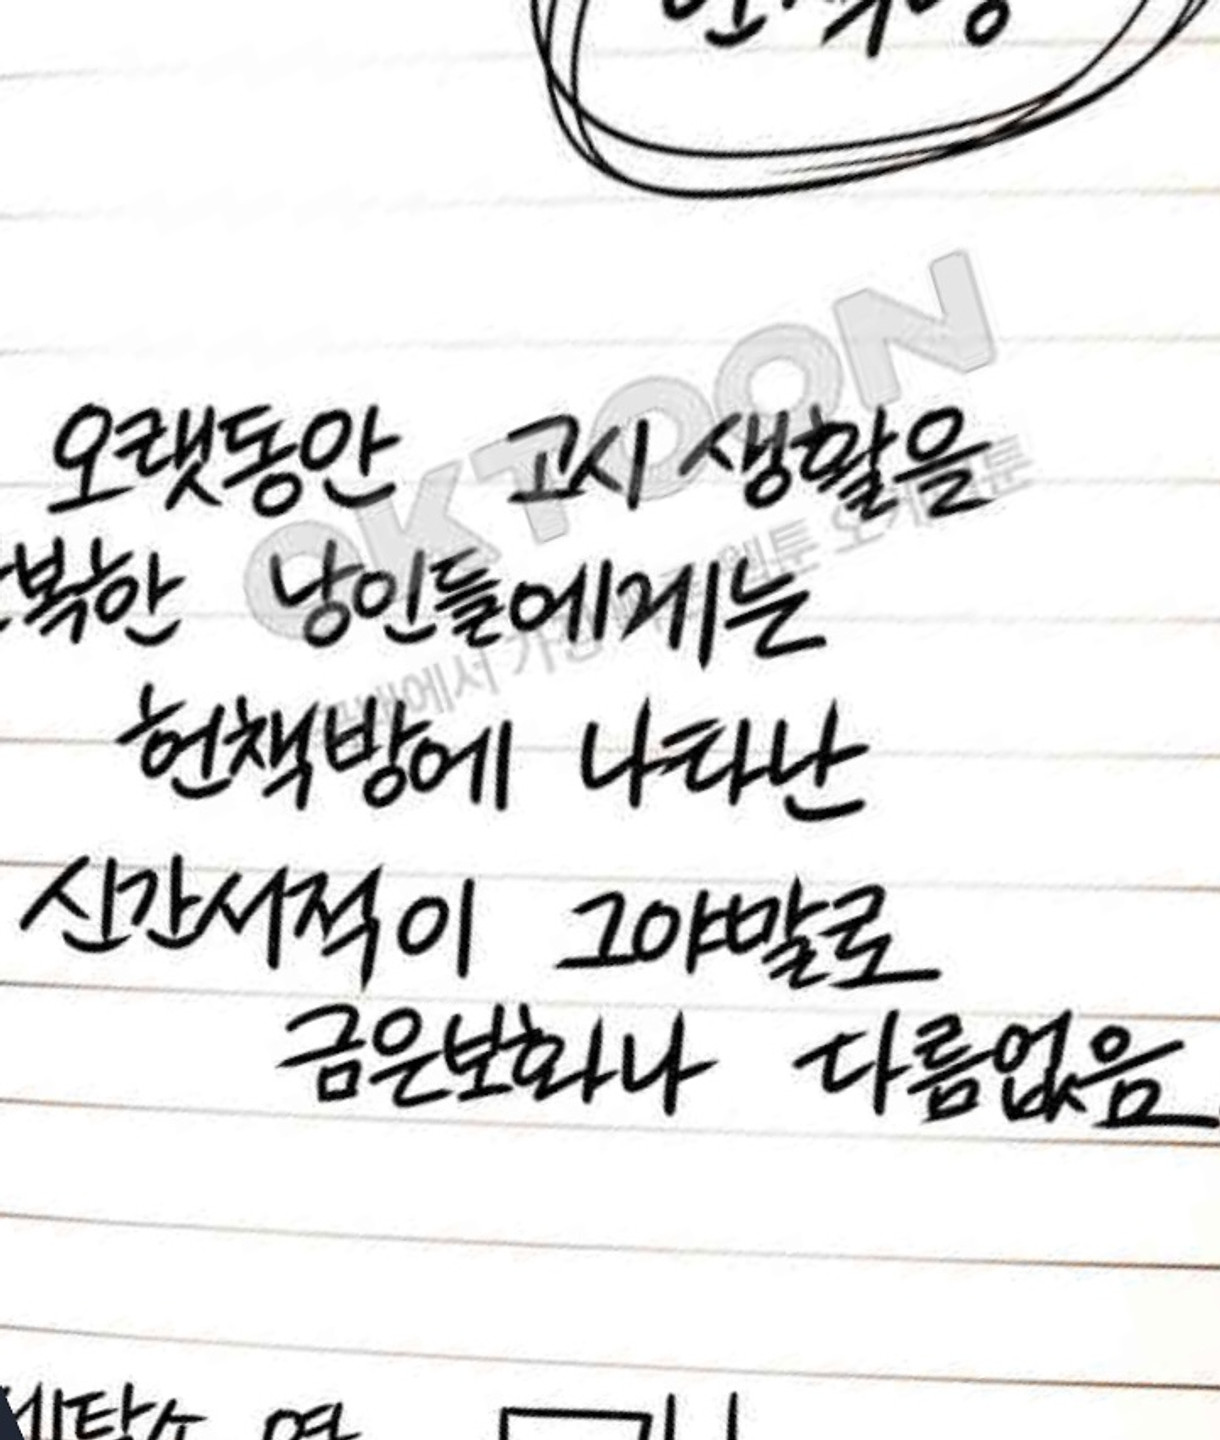 오랫동안 고시 생활을
복한 낭인들에게는
헌책방에 나타난
신간서적이 그야말로
금은보화나 다름없음
OKTOON